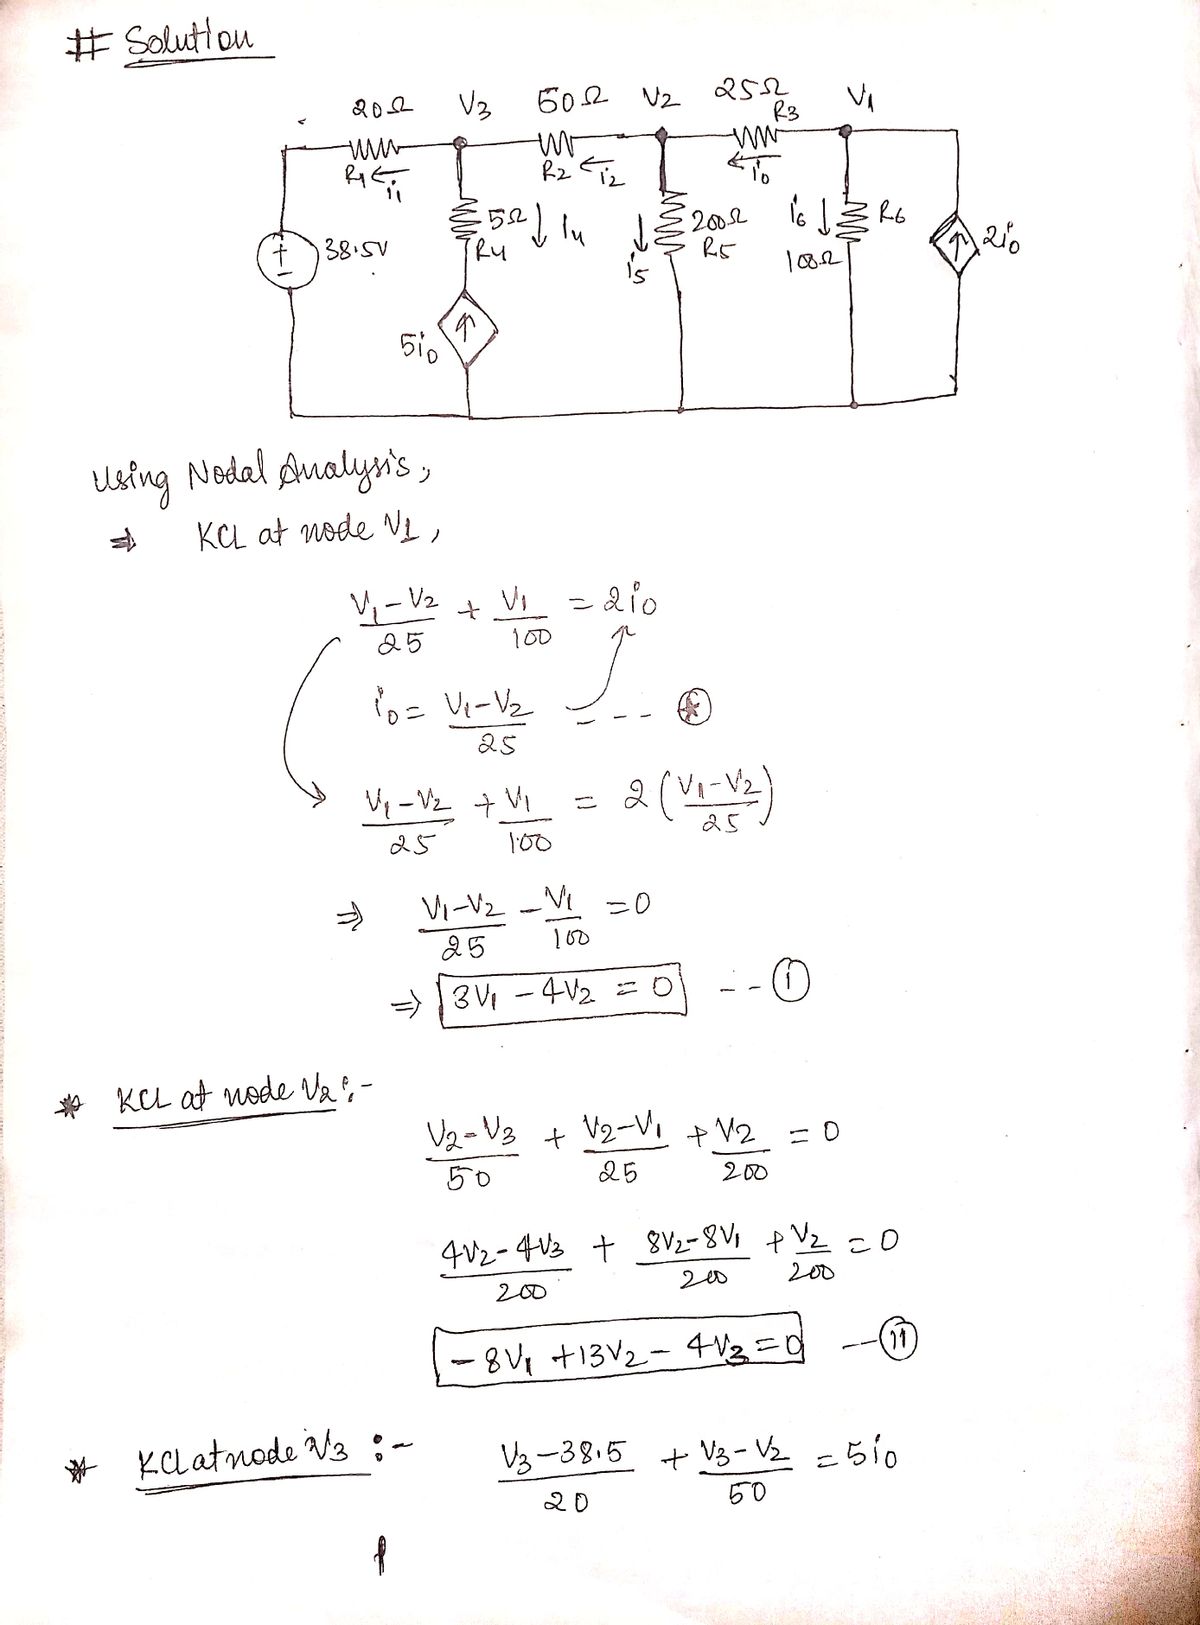 # Solution
20Ω V3 50Ω V2 25Ω V1
R3
R1 ← i1 R2 ← i2 ← i0
5Ω ↓ i4 200Ω i6 ↓ R6
+ - 38.5V R4 ↓ i5 R5 100Ω ↑ 2i0
5i0 ↑
Using Nodal Analysis,
⇒ KCL at node V1,
(V1-V2)/25 + V1/100 = 2i0
i0 = (V1-V2)/25 ---- (*)
(V1-V2)/25 + V1/100 = 2((V1-V2)/25)
⇒ (V1-V2)/25 - V1/100 = 0
⇒ 3V1 - 4V2 = 0 --- (i)
* KCL at node V2 :-
(V2-V3)/50 + (V2-V1)/25 + V2/200 = 0
(4V2-4V3)/200 + (8V2-8V1)/200 + V2/200 = 0
-8V1 + 13V2 - 4V3 = 0 --- (ii)
* KCL at node V3 :- (V3-38.5)/20 + (V3-V2)/50 = 5i0